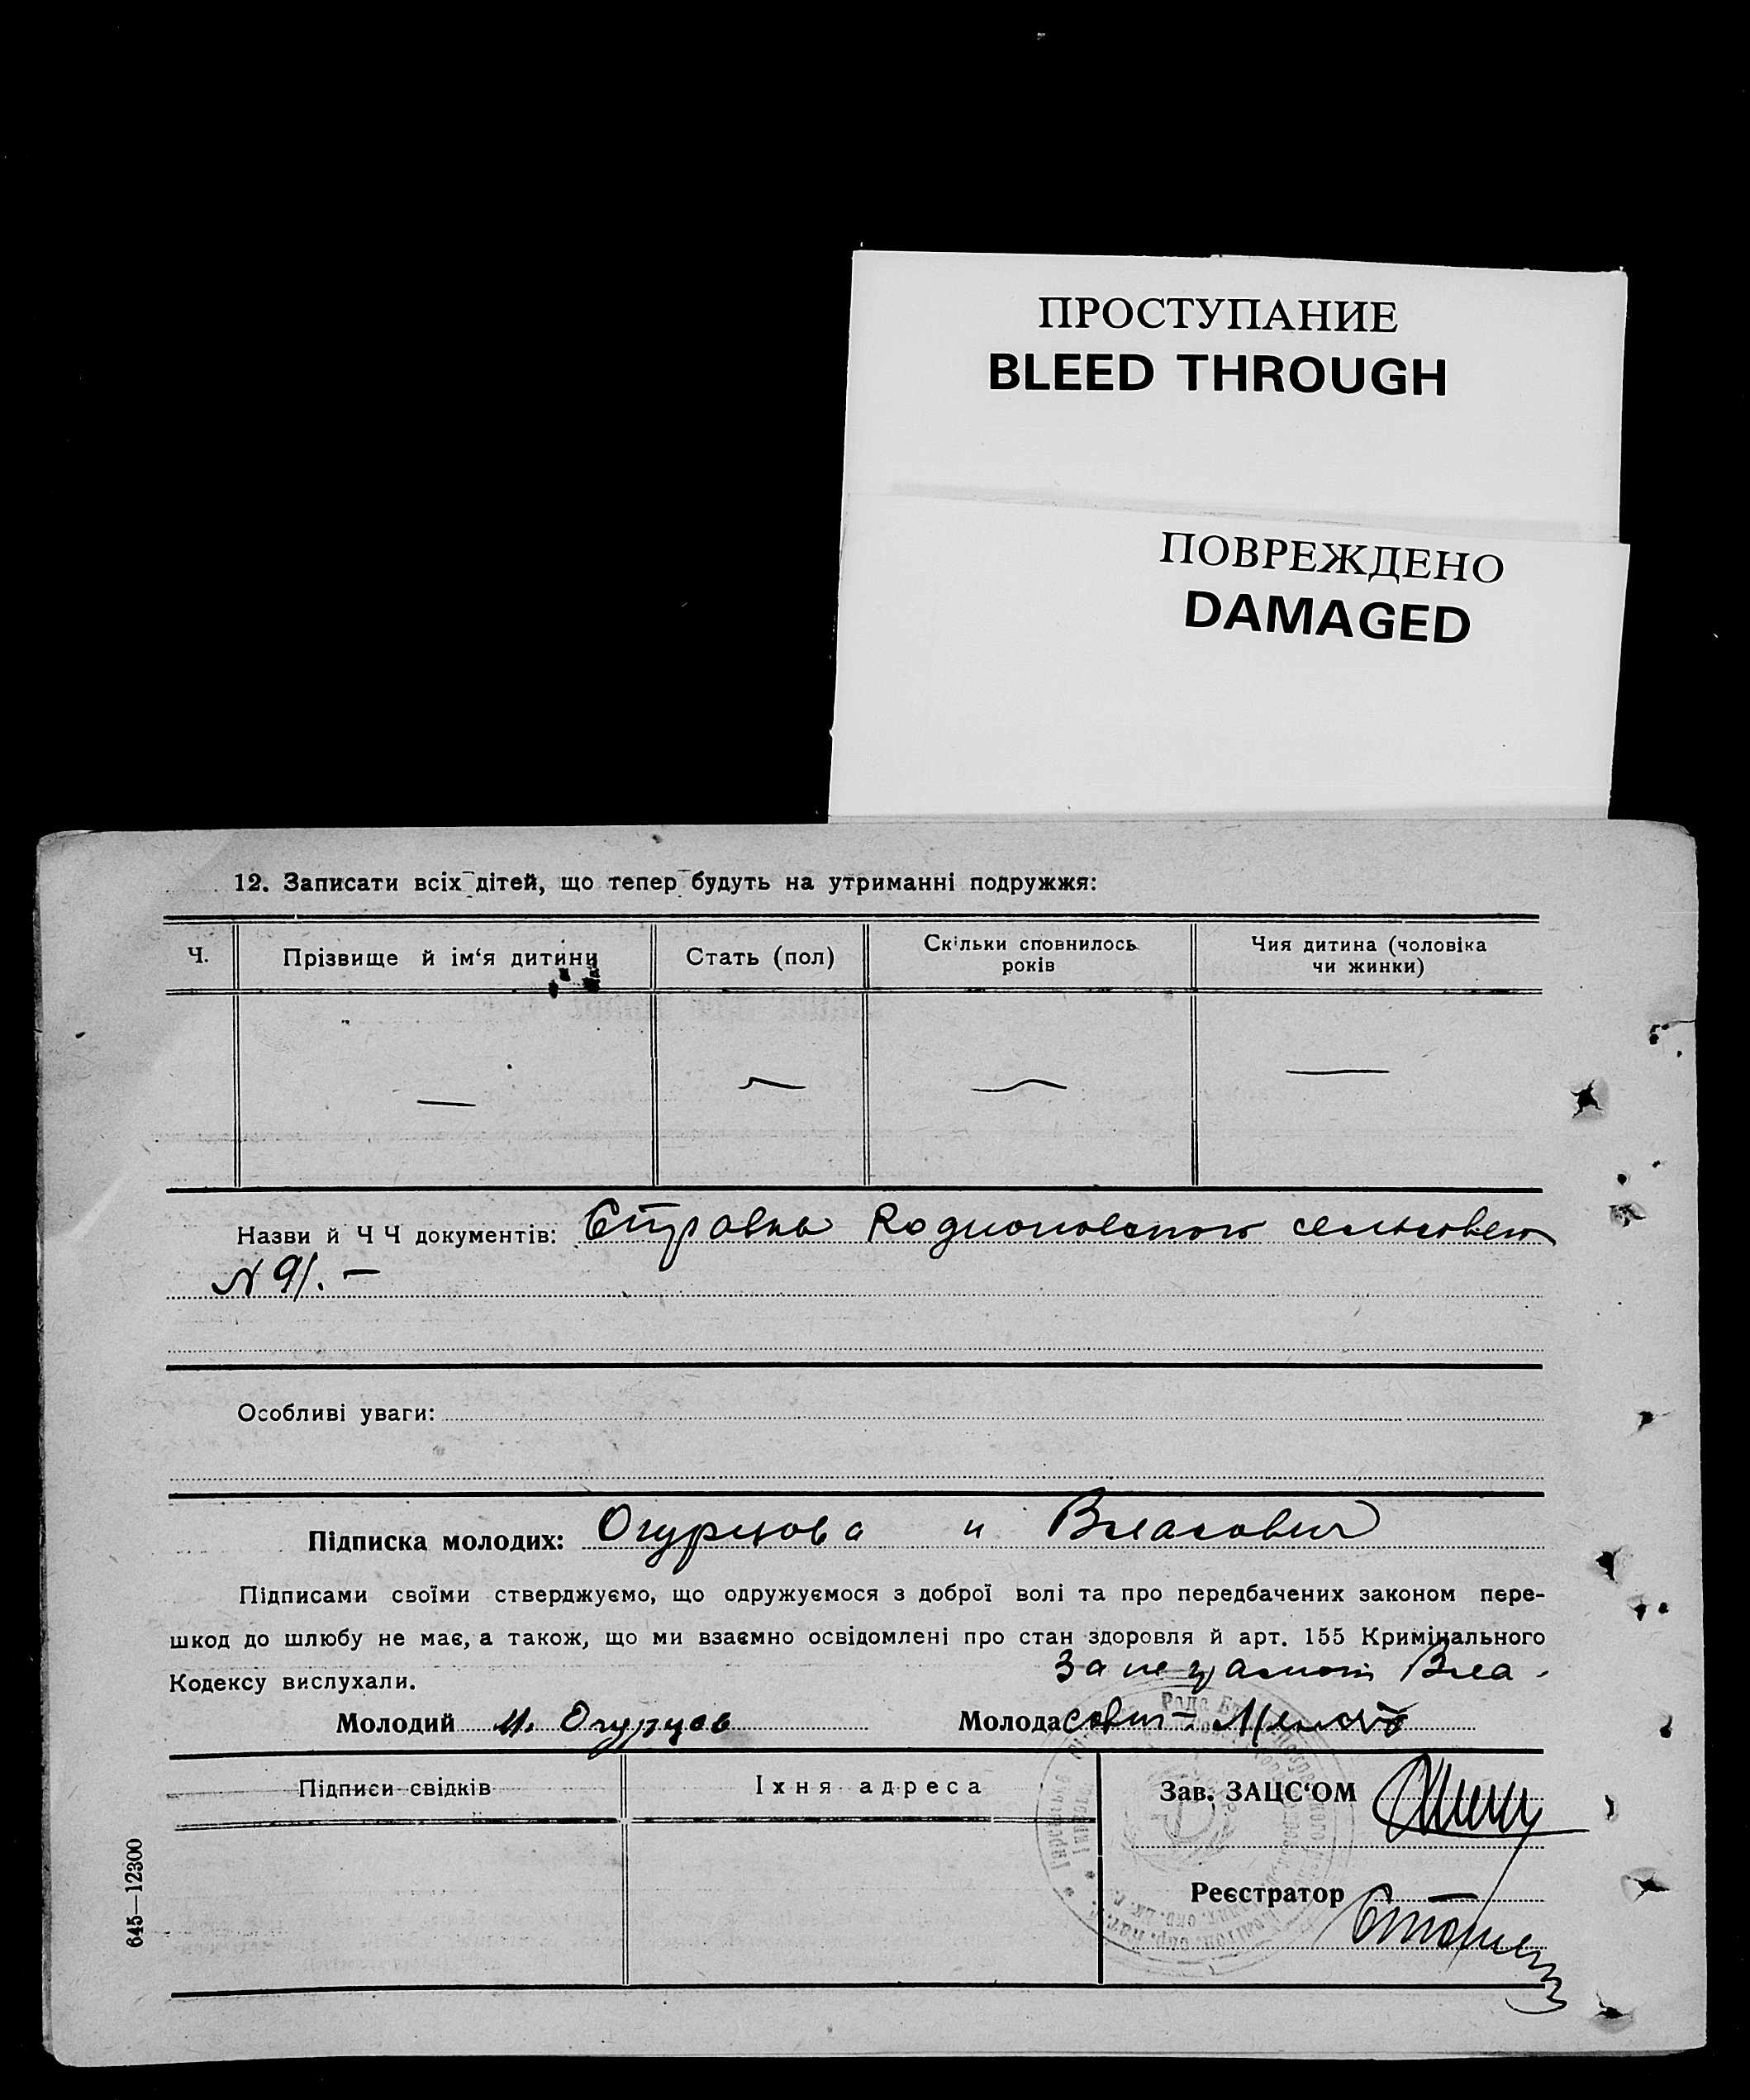 ПРОСТУПАНИЕ
BLEED THROUGH
ПОВРЕЖДЕНО
DAMAGED
12. Записати всіх дітей, що тепер будуть на утриманні подружжя:
Ч. Прізвище й ім‘я дитини Стать (пол) Скільки сповнилось років Чия дитина (чоловіка чи жинки)
— — — —
Назви й Ч Ч документів: Справка Родионовского сельсовета
N 91. —
Особливі уваги:
Підписка молодих: Огурцова и Власович
Підписами своїми стверджуємо, що одружуємося з доброї волі та про передбачених законом пере-
шкод до шлюбу не має, а також, що ми взаємно освідомлені про стан здоровля й арт. 155 Кримінального
Кодексу вислухали.
За неграмот Вла-
Молодий И. Огурцов Молода сович —
Підписи свідків Їхня адреса Зав. ЗАЦС‘ОМ
Реєстратор
645—12300